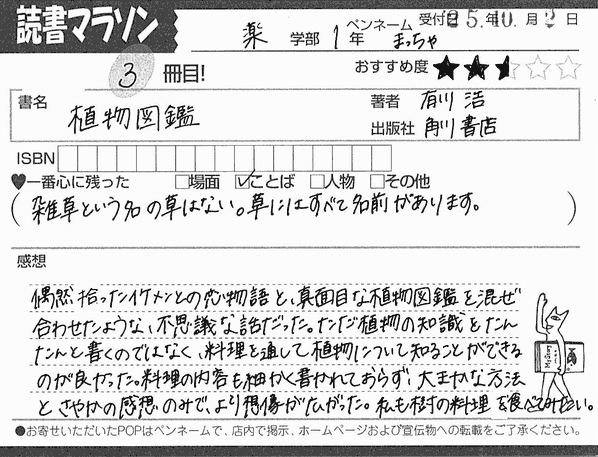 読書マラソン
薬 学部 1年 ペンネーム まっちゃ 受付日 25.年10.月2日
3 冊目! おすすめ度 ★★
書名 植物図鑑 著者 有川 浩
出版社 角川書店
ISBN
♥一番心に残った □場面 ☑ことば □人物 □その他
(雑草という名の草はない。草にはすべて名前があります。)
感想
偶然拾ったイケメンとの恋物語と、真面目な植物図鑑を混ぜ
合わせたような、不思議な話だった。ただ植物の知識をたん
たんと書くのではなく、料理を通して植物について知ることができる
のが良かった。料理の内容も細かく書かれておらず、大まかな方法
とさやかの感想のみで、より想像が広がった。私も樹の料理を食べてみたい。
●お寄せいただいたPOPはペンネームで、店内で掲示、ホームページおよび宣伝物への転載をご了承ください。